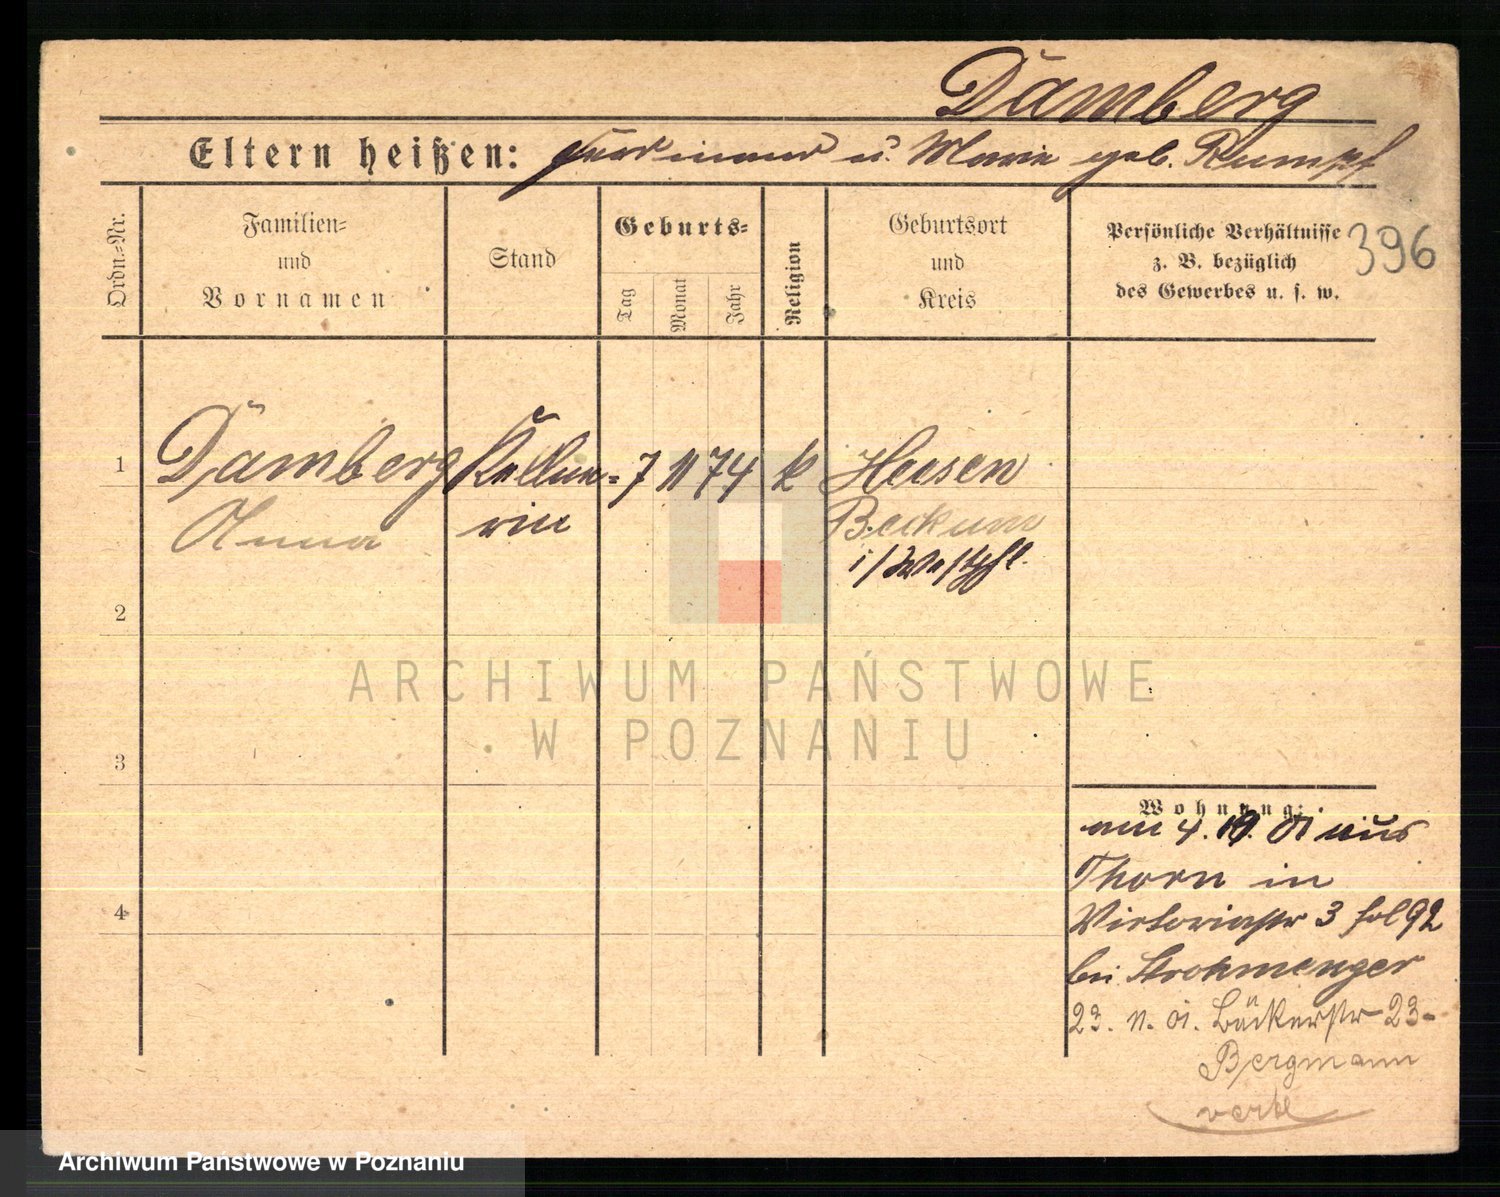 Dämberg
Eltern heißen: Ferdinand u. Marie geb. Rumpf
Ordn.=Nr.
Familien=
und
Vornamen
Stand
Geburts=
Tag
Monat
Jahr
Religion
Geburtsort
und
Kreis
Persönliche Verhältnisse
z. B. bezüglich
des Gewerbes u. s. w.
396
1 Dämberg Kellne= 7 11 74 k Heesen
Anna rin Beckum
i/Westpfl.
2
3
4
ARCHIWUM PAŃSTWOWE
W POZNANIU
Wohnung:
am 4. 10. 01 aus
Thorn in
Victoriastr 3 fol 92
bei Strohmenger
23. 11. 01. Bäckerstr 23-
Bergmann
verte
Archiwum Państwowe w Poznaniu